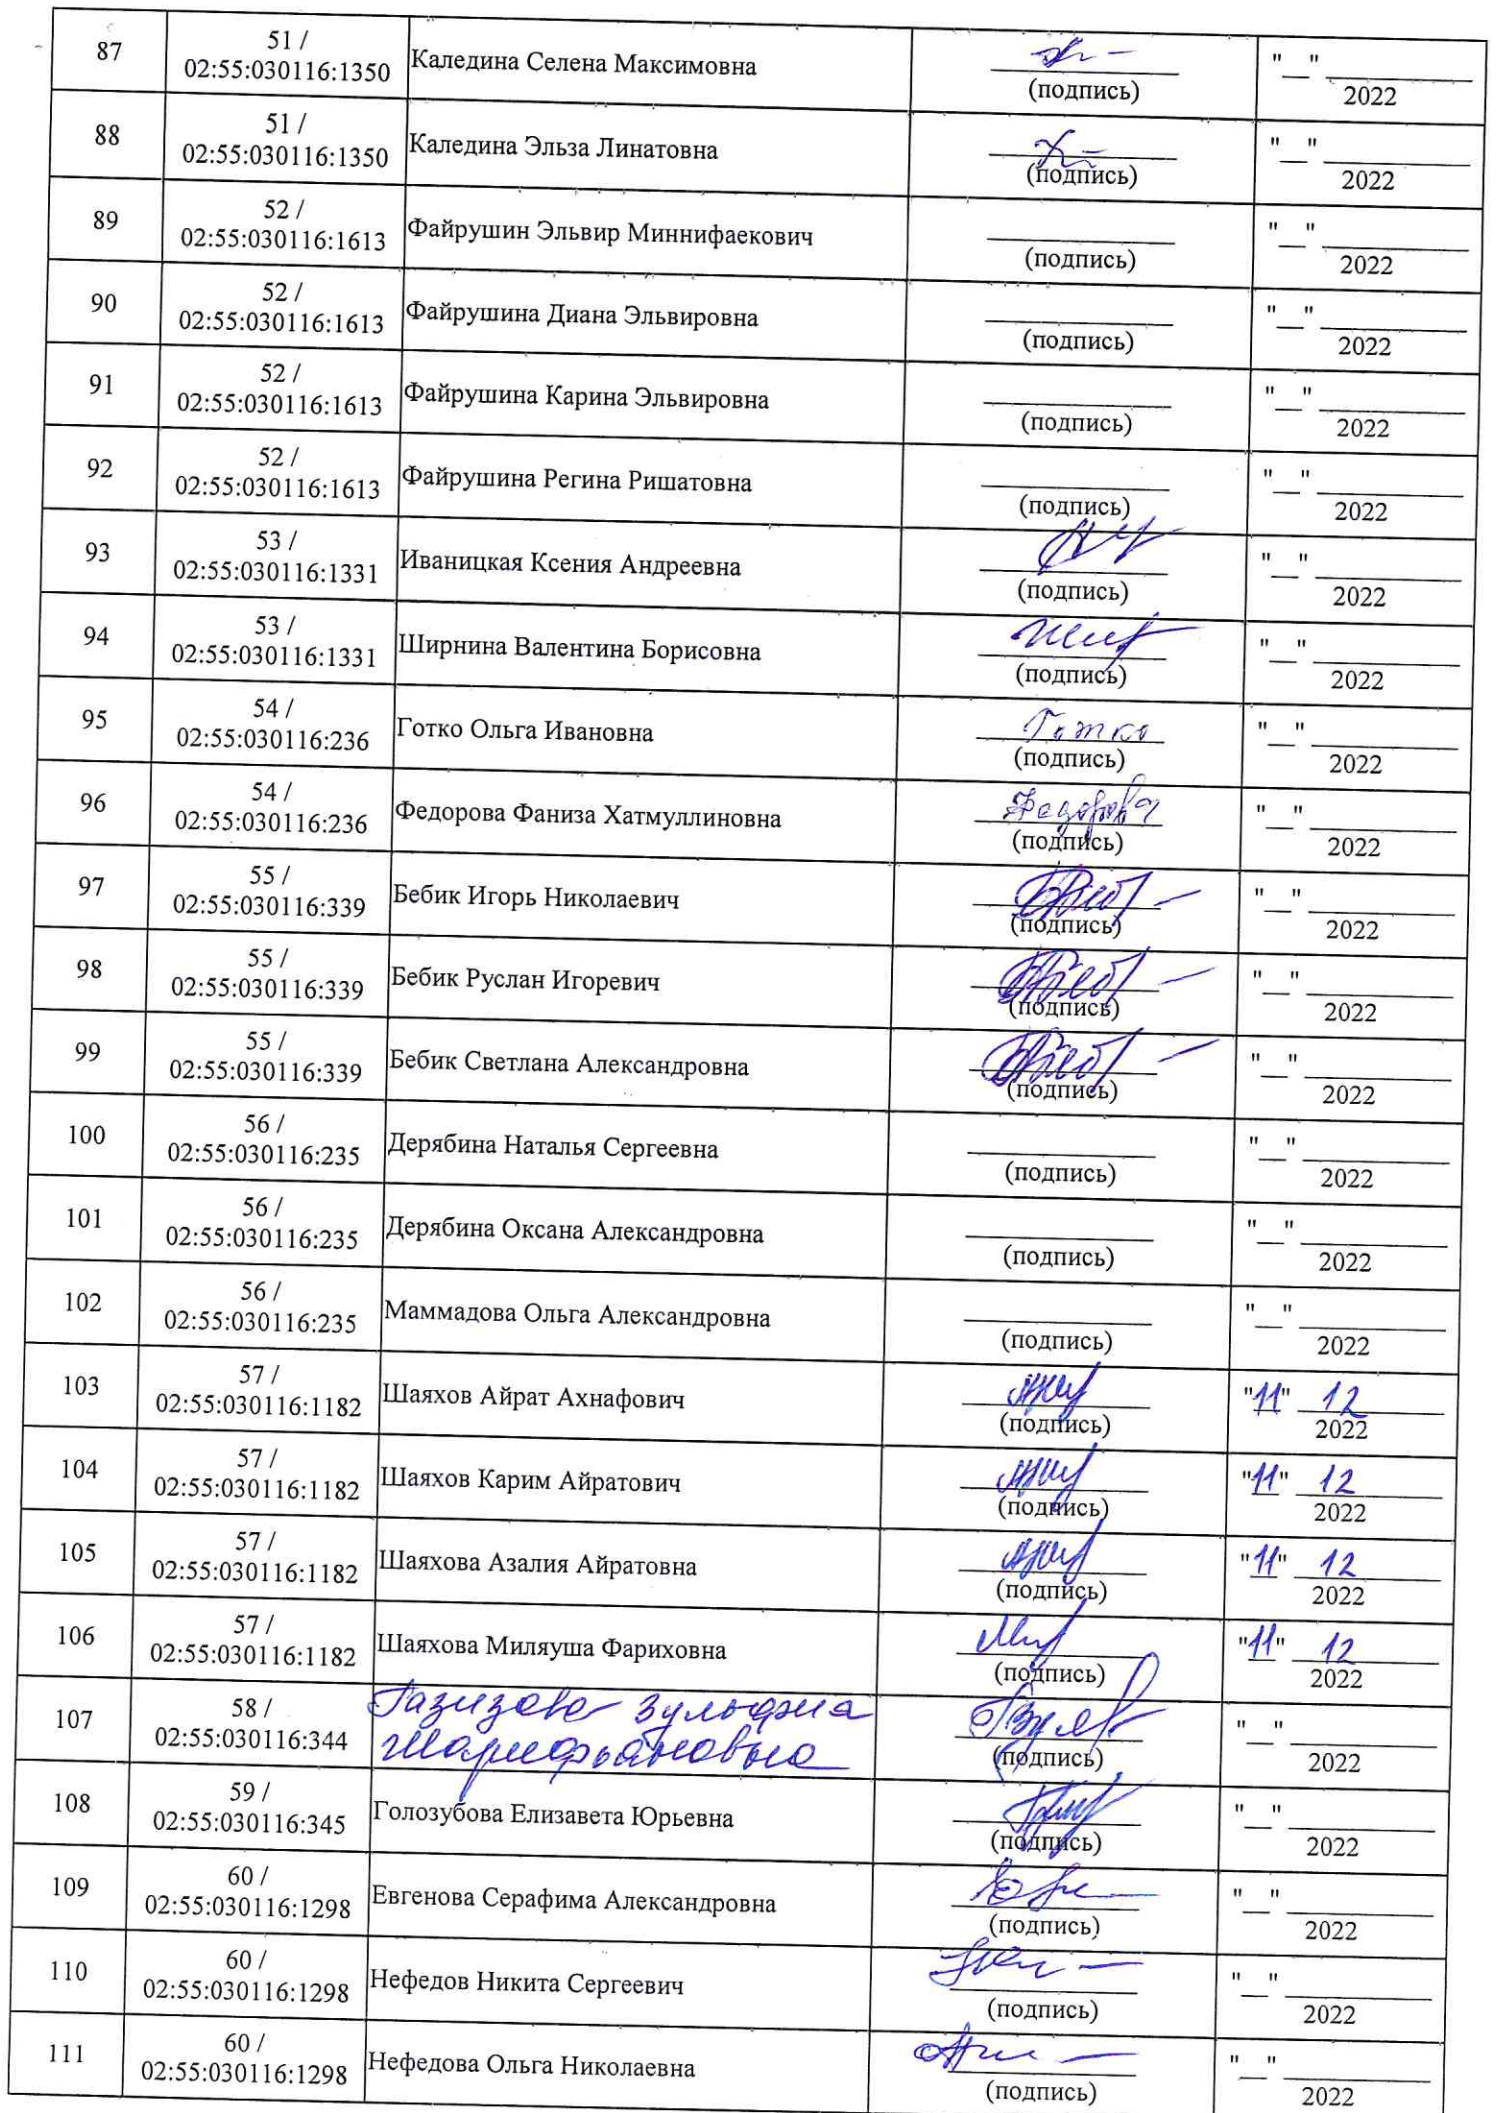 87
51 /
02:55:030116:1350
Каледина Селена Максимовна
(подпись)
"__" ________
2022
88
51 /
02:55:030116:1350
Каледина Эльза Линатовна
(подпись)
"__" ________
2022
89
52 /
02:55:030116:1613
Файрушин Эльвир Миннифаекович
(подпись)
"__" ________
2022
90
52 /
02:55:030116:1613
Файрушина Диана Эльвировна
(подпись)
"__" ________
2022
91
52 /
02:55:030116:1613
Файрушина Карина Эльвировна
(подпись)
"__" ________
2022
92
52 /
02:55:030116:1613
Файрушина Регина Ришатовна
(подпись)
"__" ________
2022
93
53 /
02:55:030116:1331
Иваницкая Ксения Андреевна
(подпись)
"__" ________
2022
94
53 /
02:55:030116:1331
Ширнина Валентина Борисовна
(подпись)
"__" ________
2022
95
54 /
02:55:030116:236
Готко Ольга Ивановна
Готко
(подпись)
"__" ________
2022
96
54 /
02:55:030116:236
Федорова Фаниза Хатмуллиновна
Федорова
(подпись)
"__" ________
2022
97
55 /
02:55:030116:339
Бебик Игорь Николаевич
(подпись)
"__" ________
2022
98
55 /
02:55:030116:339
Бебик Руслан Игоревич
(подпись)
"__" ________
2022
99
55 /
02:55:030116:339
Бебик Светлана Александровна
(подпись)
"__" ________
2022
100
56 /
02:55:030116:235
Дерябина Наталья Сергеевна
(подпись)
"__" ________
2022
101
56 /
02:55:030116:235
Дерябина Оксана Александровна
(подпись)
"__" ________
2022
102
56 /
02:55:030116:235
Маммадова Ольга Александровна
(подпись)
"__" ________
2022
103
57 /
02:55:030116:1182
Шаяхов Айрат Ахнафович
(подпись)
"11" 12
2022
104
57 /
02:55:030116:1182
Шаяхов Карим Айратович
(подпись)
"11" 12
2022
105
57 /
02:55:030116:1182
Шаяхова Азалия Айратовна
(подпись)
"11" 12
2022
106
57 /
02:55:030116:1182
Шаяхова Миляуша Фариховна
(подпись)
"11" 12
2022
107
58 /
02:55:030116:344
Газизова Зульфиа
Шарифьяновна
(подпись)
"__" ________
2022
108
59 /
02:55:030116:345
Голозубова Елизавета Юрьевна
(подпись)
"__" ________
2022
109
60 /
02:55:030116:1298
Евгенова Серафима Александровна
(подпись)
"__" ________
2022
110
60 /
02:55:030116:1298
Нефедов Никита Сергеевич
(подпись)
"__" ________
2022
111
60 /
02:55:030116:1298
Нефедова Ольга Николаевна
(подпись)
"__" ________
2022